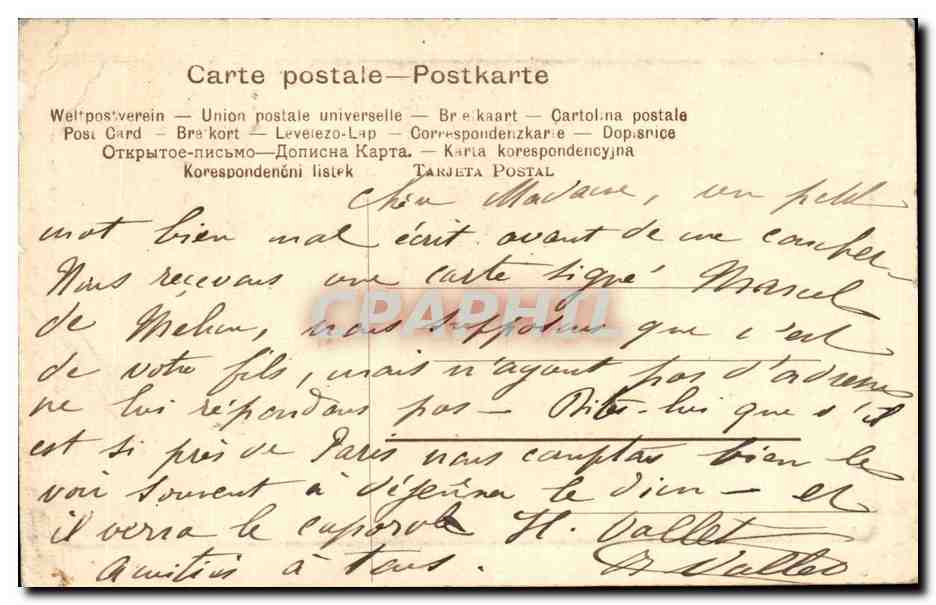 Carte postale—Postkarte
Weltpostverein — Union postale universelle — Briefkaart — Cartolina postale
Post Card — Brefkort — Levelező-Lap — Correspondenzkarte — Dopisnice
Открытое-письмо—Дописна Карта. — Karta korespondencyjna
Korespondenčni listek TARJETA POSTAL
Chère Madame, un petit
mot bien mal écrit avant de me coucher
Nous recevons une carte signé Marcel
de Melun, nous supposons que c'est
de votre fils, mais n'ayant pas d'adresse
ne lui répondons pas — Dites-lui que s'il
est si près de Paris nous comptons bien le
voir souvent à déjeuner le dim — et
il verra le caporal H. Vallet
Amitiés à tous. H Vallet
CPAPHIL